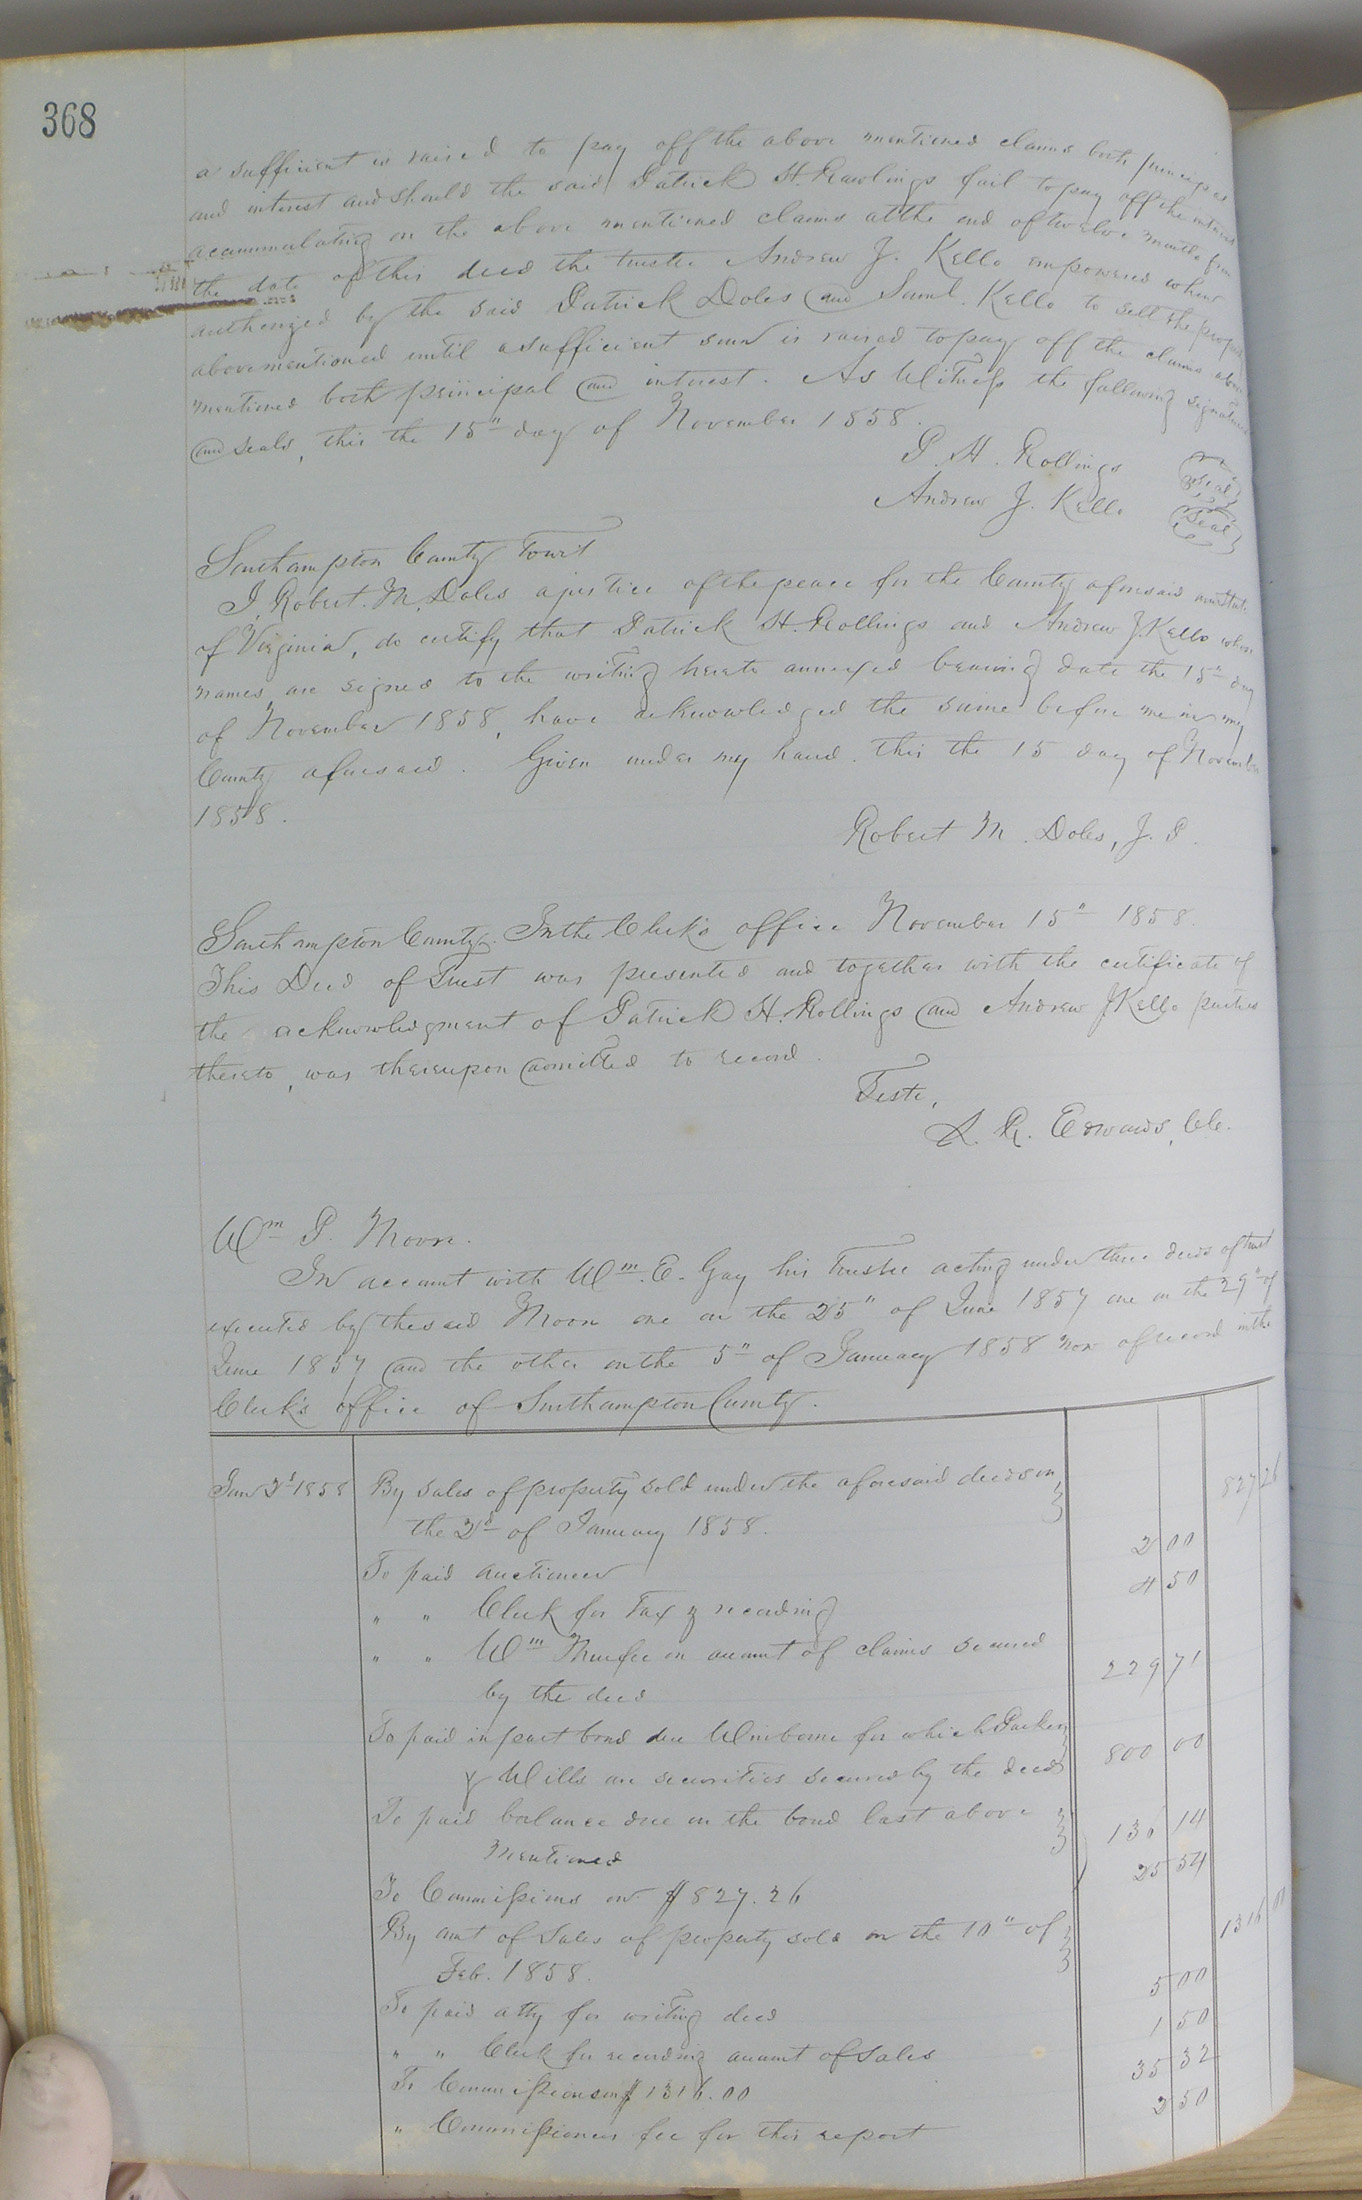 368
a sufficient is raised to pay off the above mentioned claims both principal
and interest and should the said Patrick H. Rawlings fail to pay off the interest
accummulating on the above mentioned claims at the end of twelve months from
the date of this deed the trustee Andrew J. Kello empowered when
authorized by the said Patrick Doles and Saml. Kello to sell the property
above mentioned until a sufficient sum is raised to pay off the claims above
mentioned both principal and interest. As Witness the following signatures
and seals, this the 15" day of November 1858.
P. H. Rollings Seal
Andrew J. Kello Seal
Southampton County Towit
I, Robert. M. Doles a justice of the peace for the County aforesaid and State
of Virginia, do certify that Patrick H. Rollings and Andrew J. Kello whose
names are signed to the writing hereto annexed bearing date the 15" day
of November 1858, have acknowledged the same before me in my
County aforesaid. Given under my hand this the 15 day of November
1858.
Robert M. Doles, J. P.
Southampton County. In the Clerk's office November 15" 1858.
This Deed of Trust was presented and together with the certificate of
the acknowledgment of Patrick H. Rollings and Andrew J Kello parties
thereto, was thereupon admitted to record.
Teste,
L. R. Edwards, Clk.
Wm P. Moore.
In account with Wm. E. Gay his Trustee acting under three deeds of trust
executed by the said Moore one on the 25" of June 1857 one on the 29" of
June 1857 and the other on the 5" of January 1858 now of record in the
Clerk's office of Southampton County.
Jan 2d 1858 By sales of property sold under the aforesaid deeds on 827 26
the 2d of January 1858.
To paid auctioneer 2 00
" " Clerk for Tax & recording 4 50
" " Wm in amount of claims secured
by the deed 229 71
To paid in part bond due for which Parker
& Wills are securities secured by the deed 800 00
To paid balance due on the bond last above
Mentioned 136 14
To Commissions on $827.26 25 54
By amt of sales of property sold on the 10" of 1316 00
Feb. 1858.
To paid atty for writing deed 5 00
" " Clerk for recording amount of sales 1 50
To Commissions on $1316.00 35 32
" Commissioners fee for this report 2 50